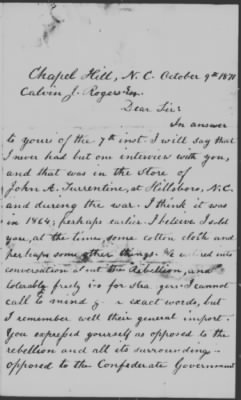 Chapel Hill, N.C. October 9th 1871
Calvin J. Rogers Esq.
Dear Sir:
In answer
to yours of the 7th inst I will say that
I never had but one interview with you,
and that was in the store of
John A. Turrentine, at Hillsboro, N.C.
and during the war. I think it was
in 1864; perhaps earlier. I believe I sold
you, at the time, some cotton cloth and
perhaps some other things. We entered into
conversation about the Rebellion, and
tolerably freely too for strangers. I cannot
call to mind exact words, but
I remember well their general import.
You expressed yourself as opposed to the
rebellion and all its surroundings
opposed to the Confederate Government